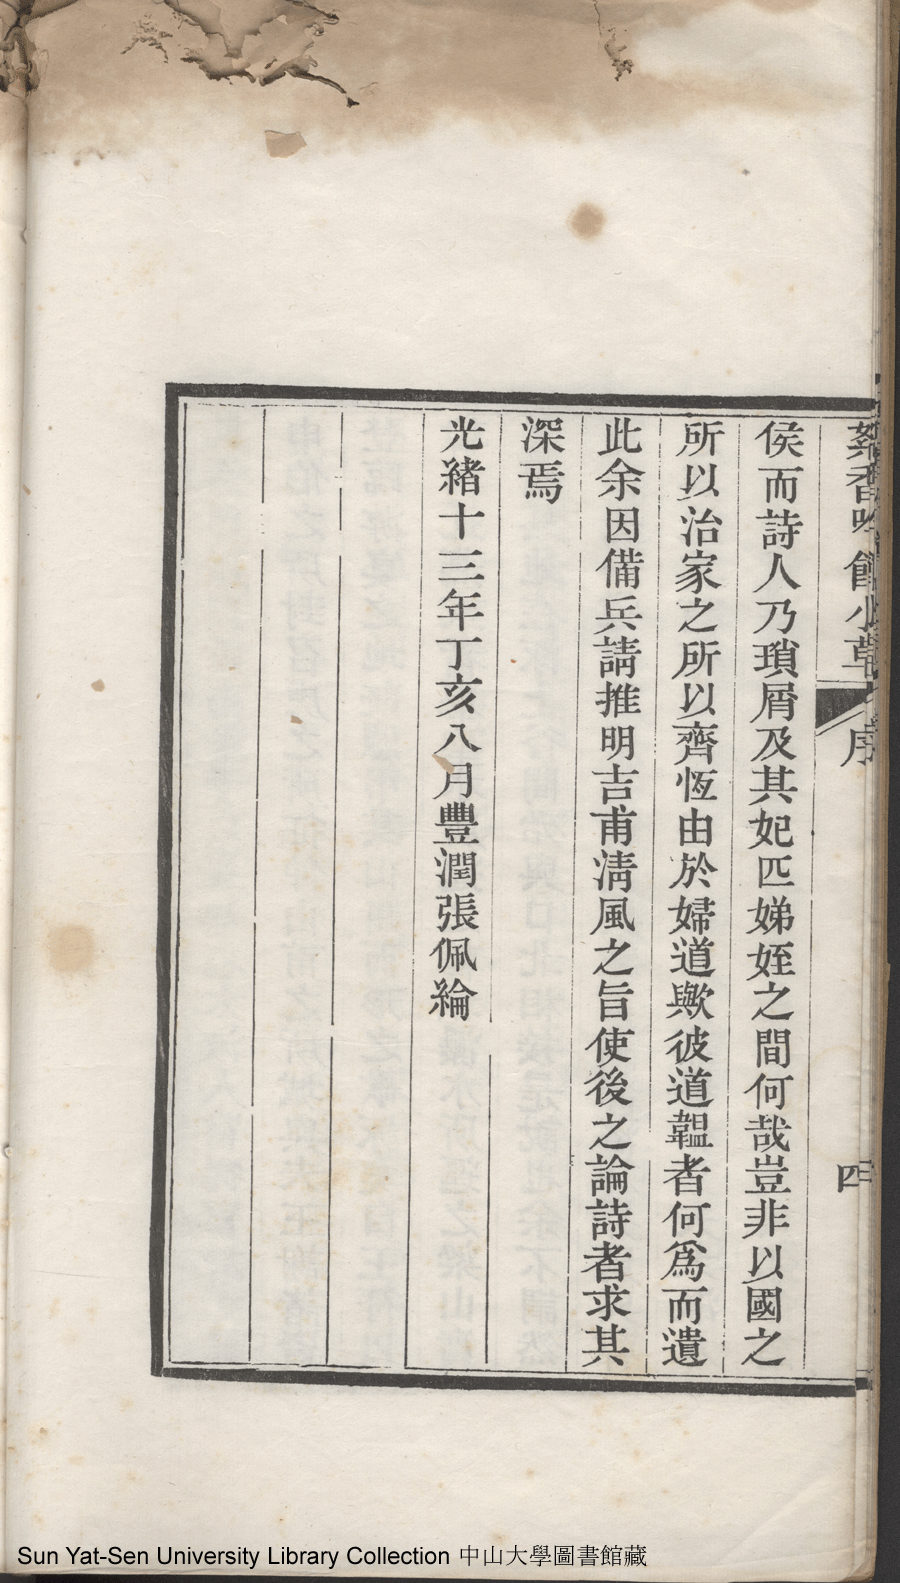 香吟館小草
序
四
侯而詩人乃瑣屑及其妃匹娣姪之間何哉豈非以國之
所以治家之所以齊恆由於婦道歟彼道韞者何爲而遺
此余因備兵請推明吉甫清風之旨使後之論詩者求其
深焉
光緒十三年丁亥八月豐潤張佩綸
Sun Yat-Sen University Library Collection 中山大學圖書館藏